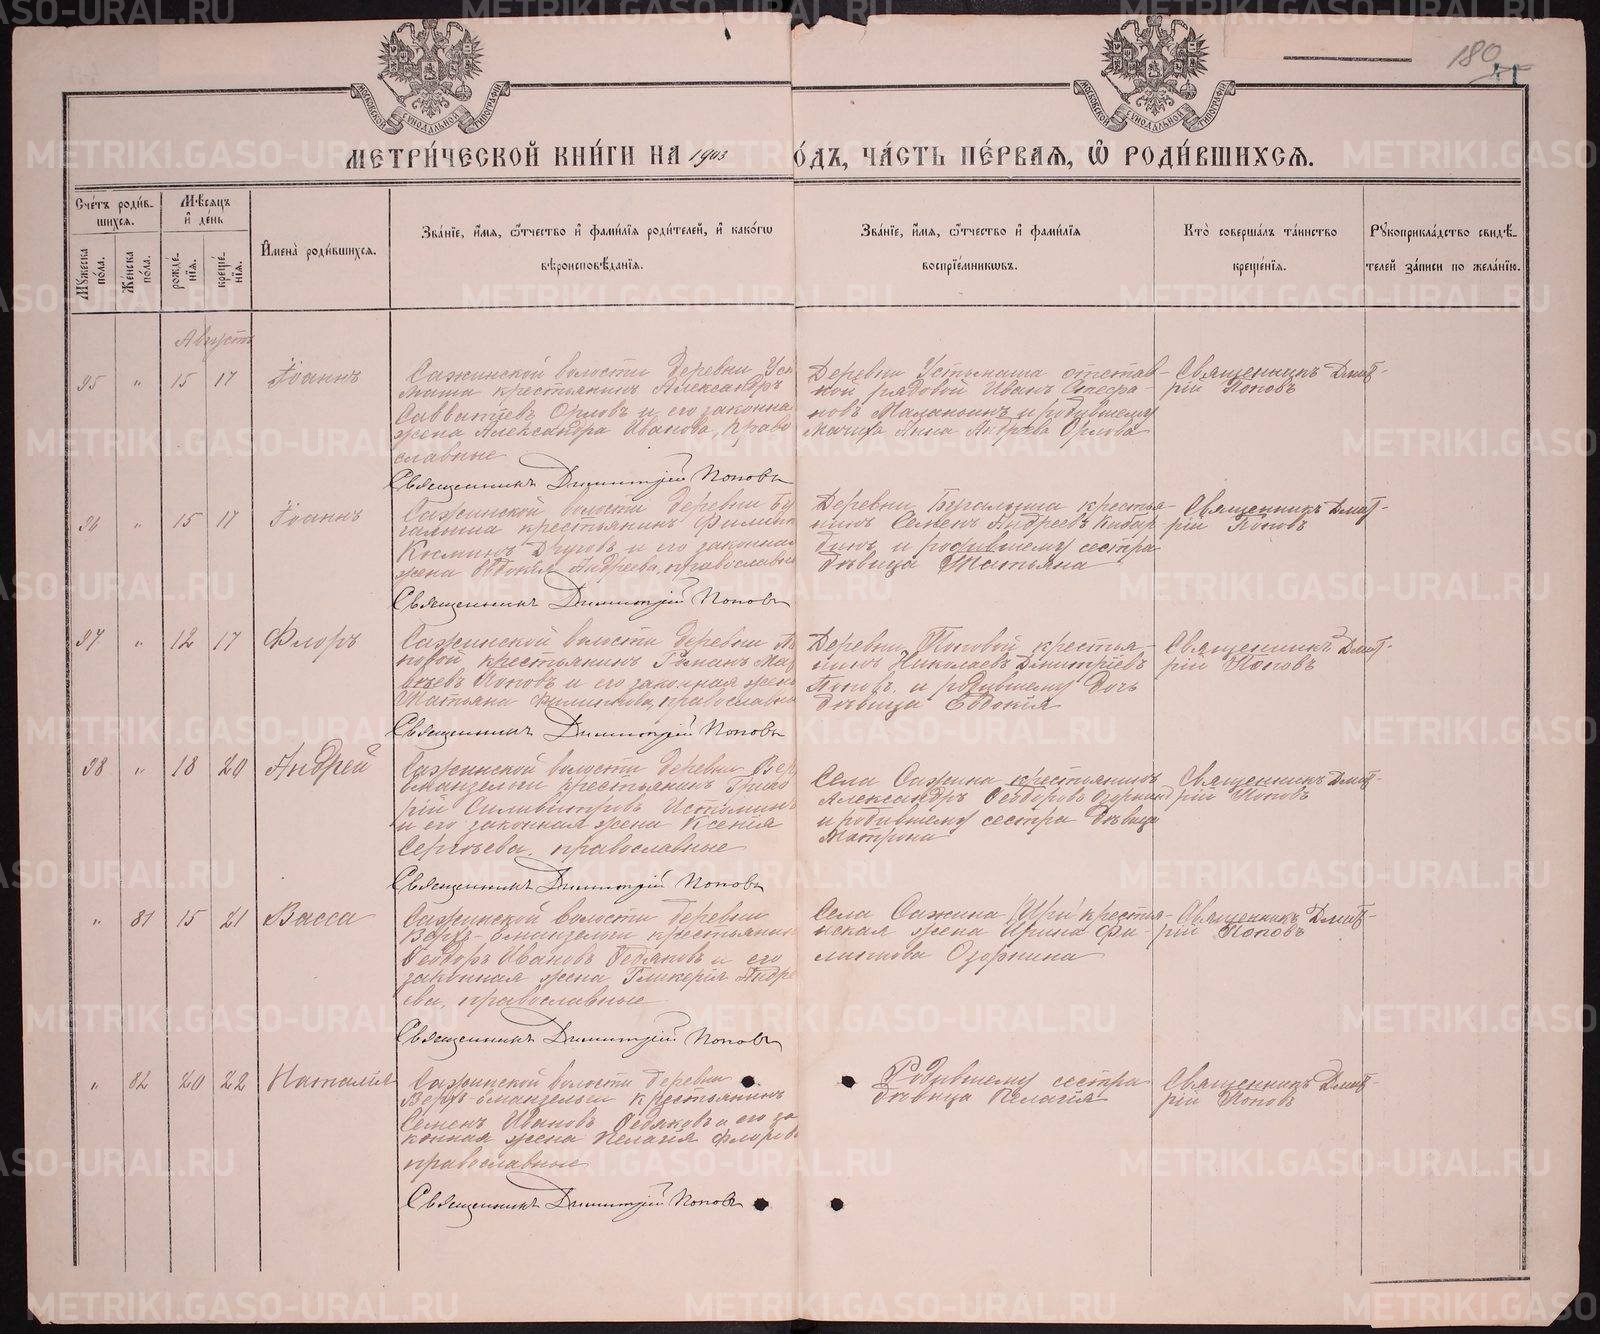 180
МОСКОВСКОЙ СѴНОДАЛЬНОЙ ТИПОГРАФІИ
МОСКОВСКОЙ СѴНОДАЛЬНОЙ ТИПОГРАФІИ
МЕТРИ́ЧЕСКОЙ КНИ́ГИ НА 1903 О́ДЪ, ЧА́СТЬ ПЕ́РВАЯ, Ѽ РОДИ́ВШИХСЯ.
Сче́тъ роди́в-
шихся.
Мѣ́сяцъ
и҆ де́нь
Мꙋжеска по́ла.
Же́нска по́ла.
рожде́-
нїя.
креще́-
нїя.
И҆мена̀ роди́вшихся.
Зва́нїе, и҆́мя, ѻ҆́тчество и҆ фами́лїя роди́телей, и҆ како́гѡ
вѣроисповѣ́данїя.
Зва́нїе, и҆́мя, ѻ҆́тчество и҆ фами́лїя
воспрїе́мниковъ.
Кто̀ соверша́лъ та́инство
креще́нїя.
Рꙋкоприкла́дство свидѣ́-
телей за́писи по жела́нїю.
Августъ
95 " 15 17 Іоаннъ
Сажинской волости деревни Усть
Маша крестьянинъ Александръ
Савватіевъ Орловъ и его законная
жена Александра Иванова, право
славные
Священникъ Димитрій Поповъ
Деревни Устьмаша отстав-
ной рядовой Иванъ Стефа-
новъ Малапкинъ и родившему
мачиха Анна Андреева Орлова
Священникъ Димит-
рій Поповъ
96 " 15 17 Іоаннъ
Сажинской волости деревни Бу
галыша крестьянинъ Филиппъ
Косминъ Друговъ и его законная
жена Евдокія Андреева, православные
Священникъ Димитрій Поповъ
Деревни Бугалыша крестья-
нинъ Семенъ Андреевъ
и родившему сестра
дѣвица Татьяна
Священникъ Димит-
рій Поповъ
97 " 12 17 Флоръ
Сажинской волости деревни По
повой крестьянинъ Романъ Мат
вѣевъ Поповъ и его законная жена
Татьяна Филиппова, православные
Священникъ Димитрій Поповъ
Деревни Поповой крестья-
нинъ Николаевъ Дмитріевъ
Поповъ и родившему дочь
дѣвица Евдокія
Священникъ Димит-
рій Поповъ
98 " 18 20 Андрей
Сажинской волости деревни Верх
бманзельги крестьянинъ Григо
рій Силивестровъ Истоминъ
и его законная жена Ксенія
Сергѣева, православные
Священникъ Димитрій Поповъ
Села Сажина крестьянинъ
Александръ Ѳеодоровъ Озорнинъ
и родившему сестра дѣвица
Матрона
Священникъ Димит-
рій Поповъ
" 81 15 21 Васса
Сажинской волости деревни
Верхъ-бманзельги крестьянинъ
Ѳеодоръ Ивановъ Федяковъ и его
законная жена Гликерія Андре
ева, православные
Священникъ Димитрій Поповъ
Села Сажина крестья-
нская жена Ирина Фи-
липпова Озорнина
Священникъ Димит-
рій Поповъ
" 82 20 22 Наталія
Сажинской волости деревни
Верхъ-бманзельги крестьянинъ
Семенъ Ивановъ Федяковъ и его за
конная жена Пелагія Флорова
православные
Священникъ Димитрій Поповъ
Родившему сестра
дѣвица Пелагія
Священникъ Димит-
рій Поповъ
METRIKI.GASO-URAL.RU